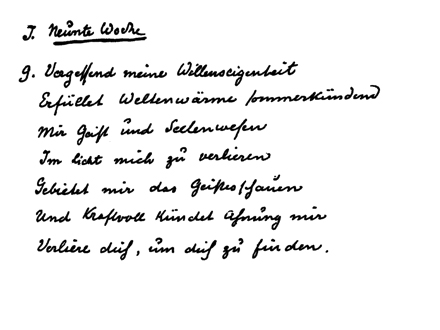 J. Neunte Woche
9. Vergessend meine Willenseigenheit
Erfüllet Weltenwärme sommerkündend
Mir Geist und Seelenwesen
Im licht mich zu verlieren
Gebietet mir das Geistesschauen
Und Kraftvoll kündet Ahnung mir
Verliere dich, um dich zu finden.